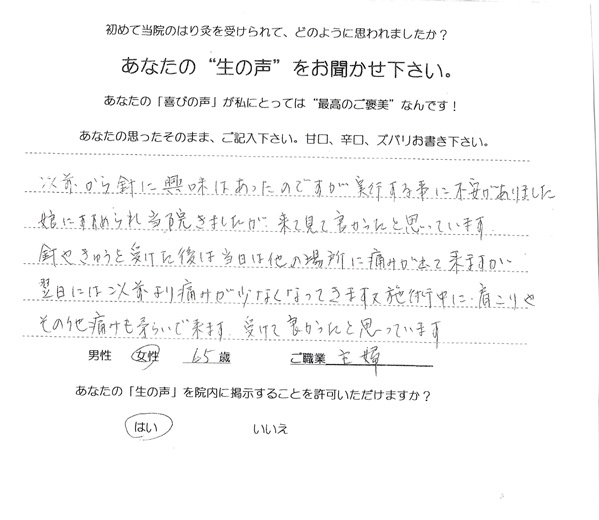 初めて当院のはり灸を受けられて、どのように思われましたか?
あなたの“生の声”をお聞かせ下さい。
あなたの「喜びの声」が私にとっては“最高のご褒美”なんです!
あなたの思ったそのまま、ご記入下さい。甘口、辛口、ズバリお書き下さい。
以前から針に興味はあったのですが実行する事に不安がありました
娘にすすめられ当院きましたが、来て見て良かったと思っています。
針やきゅうを受けた後は当日は他の場所に痛みが出て来ますが
翌日には以前より痛みが少なくなってきます又施術中に、肩こりや
その他痛みも柔らいで来ます。受けて良かったと思っています
男性 女性 65歳 ご職業 主婦
あなたの「生の声」を院内に掲示することを許可いただけますか?
はい いいえ